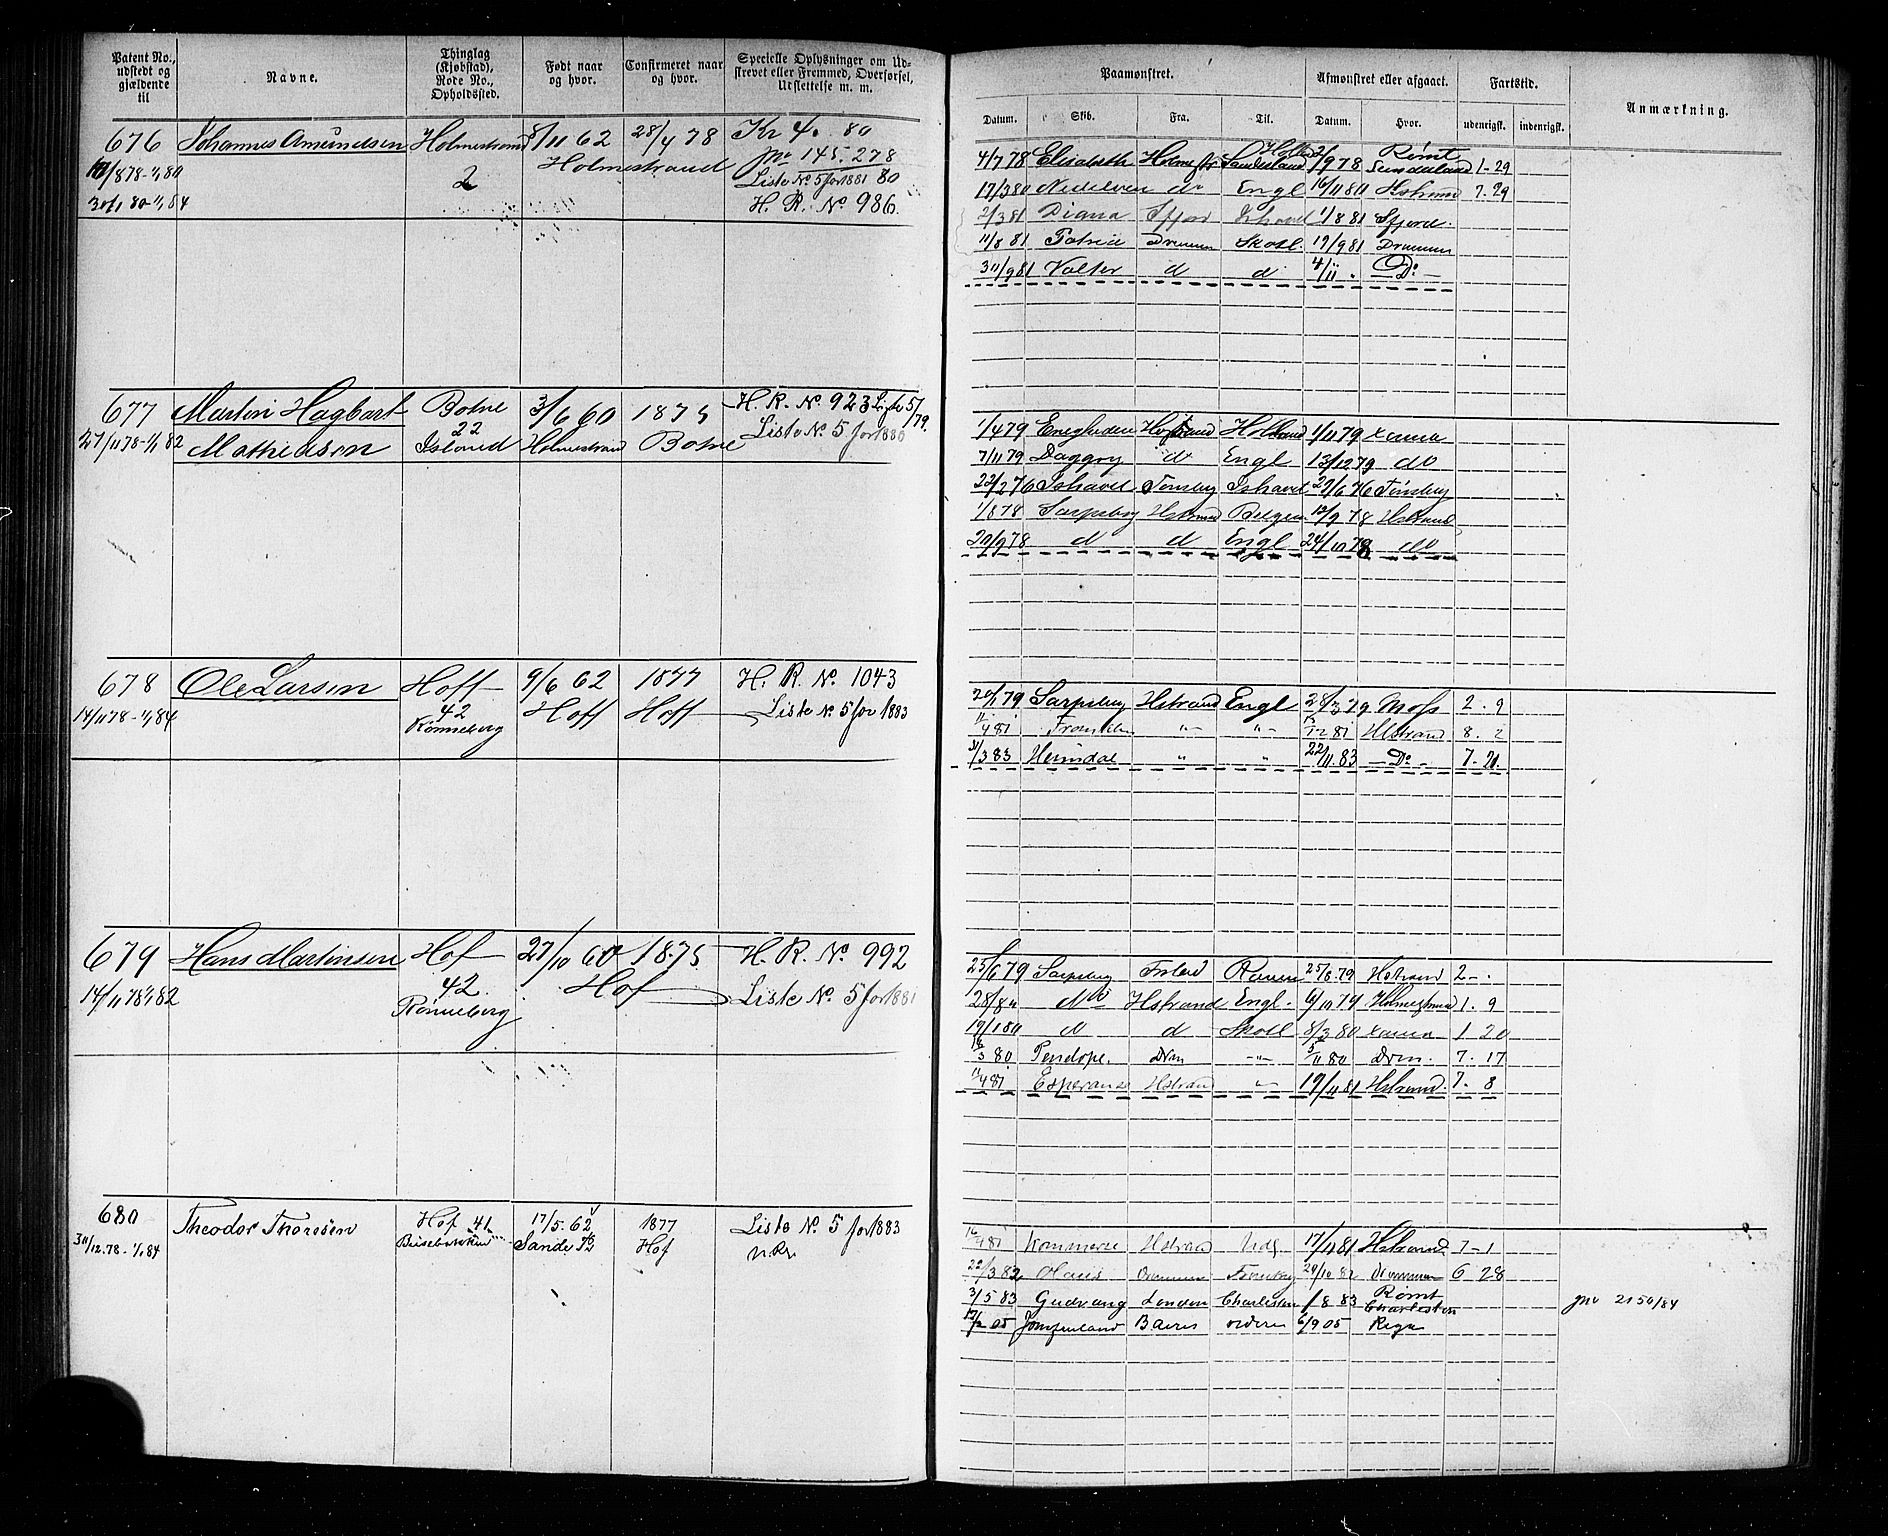 Patent No., udstedt og gjældende til
Navne.
Thinglag (Kjøbstad), Rode No., Opholdssted.
Født naar og hvor.
Confirmeret naar og hvor.
Specielle Oplysninger om Udskrevet eller Fremmed, Overførsel, Udslettelse m. m.
Paamønstret.
Afmønstret eller afgaaet.
Fartstid.
Anmærkning.
Datum. Skib. Fra. Til. Datum. Hvor. udenrigsk. indenrigsk.
676 Johannes Amundsen Holmestrand 8/11 62 28/4 78 Kr 4. 80
Holmestrand 145. 278
2 Liste No. 5 for 1881 80
H. R. No. 986.
4/7 78 Elisabeth Holmestr Sunderland 2/9 78 Rømt Sunderland 1-29
17/3 80 do Engl 16/11 80 Hstrand 7. 29
2/3 81 Diana Sfjord Ishavet 1/8 81 Sfjord.
11/8 81 Drammen Skotl. 19/9 81 Drammen
9 81 Valter d d 4/11 - Do -
677 Martin Hagbart Botne 3/6 60 1875 H. R. No. 923 Liste 5/79.
Mathiasen 22 Island Holmestrand Botne Liste No. 5 for 1880
1/4 79 Enigheden 1/11 79
7/11 79 Daggry d Engl 13/12 79 do
22/2 76 Ishavet Tønsberg Ishavet 29/6 76 Tønsberg
1/8 78 Sarpsborg Hstrand Belgien 12/9 78 Hstrand
20/9 78 d d Engl 24/10 78 do
678 Ole Larsen Hoff 9/6 62 1877 H. R. No. 1043
14/11 78 - 1/1 84 42 Rønneberg Hoff Hoff Liste No. 5 for 1883
20/1 79 Sarpsborg Hstrand Engl 28/3 79 Moss 2. 9
11/4 81 Franklin " " 81 Hstrand 8. 2
31/3 83 Heimdal " " 22/11. 83 - Do - 7. 21.
679 Hans Martinsen Hof 27/10 60 1875 H. R. No. 992
14/11 78 1/1 82 42. Rønneberg Hof Liste No. 5 for 1881
25/6 79 Sarpsborg 25/8 79 Hstrand 2 - .
28/8 Do Hstrand Engl. 6/10 79 Holmestrand 1. 9
19/1 80 d d Skotl 8/3 80 1 20
3 80 Penelope. Drm " 5/11 80 Drm. 7. 17
11/4 81 Esperance Hstrand " 19/11 81 Hstrand. 7. 8
680 Theodor Thoresen Hof 41 17/5. 62 1877 Liste No. 5 for 1883
31/12. 78 - 1/1 84 Sande Hof
16/4 81 Kommerse Hstrand Udl 17/11 81 Hstrand 7-1
22/3 82 Drammen 20/10 82 Drammen 6 28
3/5 83 Gudvang London Charleston 1/8 83 Rømt Charleston 2150/84
05 Jomfruland Baires ordre 6/9 05 Riga